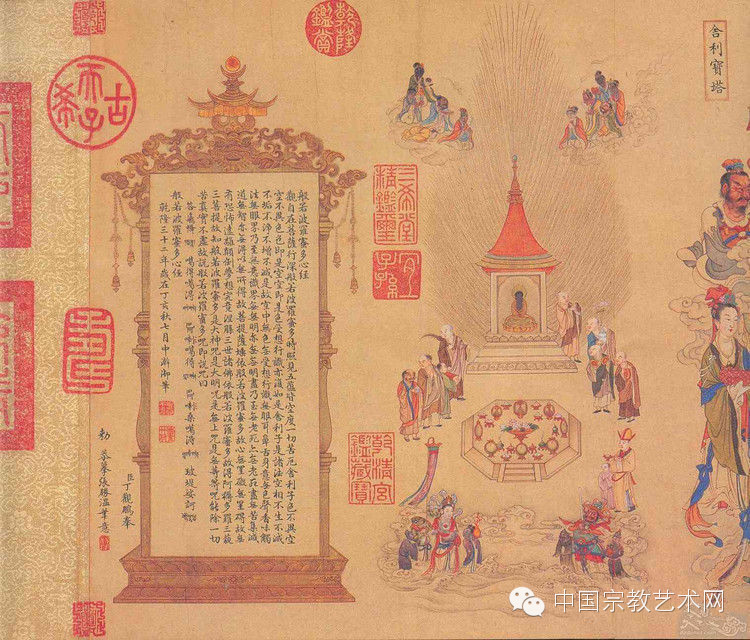 舍利寶塔
乾隆鑑賞
三希堂精鑑璽
宜子孫
乾清宮鑑藏寶
般若波羅蜜多心經
觀自在菩薩行深般若波羅蜜多時照見五蘊皆空度一切苦厄舍利子色不異空
空不異色色即是空空即是色受想行識亦復如是舍利子是諸法空相不生不滅
不垢不淨不增不減是故空中無色無受想行識無眼耳鼻舌身意無色聲香味觸
法無眼界乃至無意識界無無明亦無無明盡乃至無老死亦無老死盡無苦集滅
道無智亦無得以無所得故菩提薩埵依般若波羅蜜多故心無罣礙無罣礙故無
有恐怖遠離顛倒夢想究竟涅槃三世諸佛依般若波羅蜜多故得阿耨多羅三藐
三菩提故知般若波羅蜜多是大神咒是大明咒是無上咒是無等等咒能除一切
苦真實不虛故說般若波羅蜜多咒即說咒曰
般若波羅蜜多心經
乾隆三十二年歲在丁亥秋七月中澣御筆
古希天子
臣丁觀鵬奉
勅恭摹張勝溫筆意
中国宗教艺术网